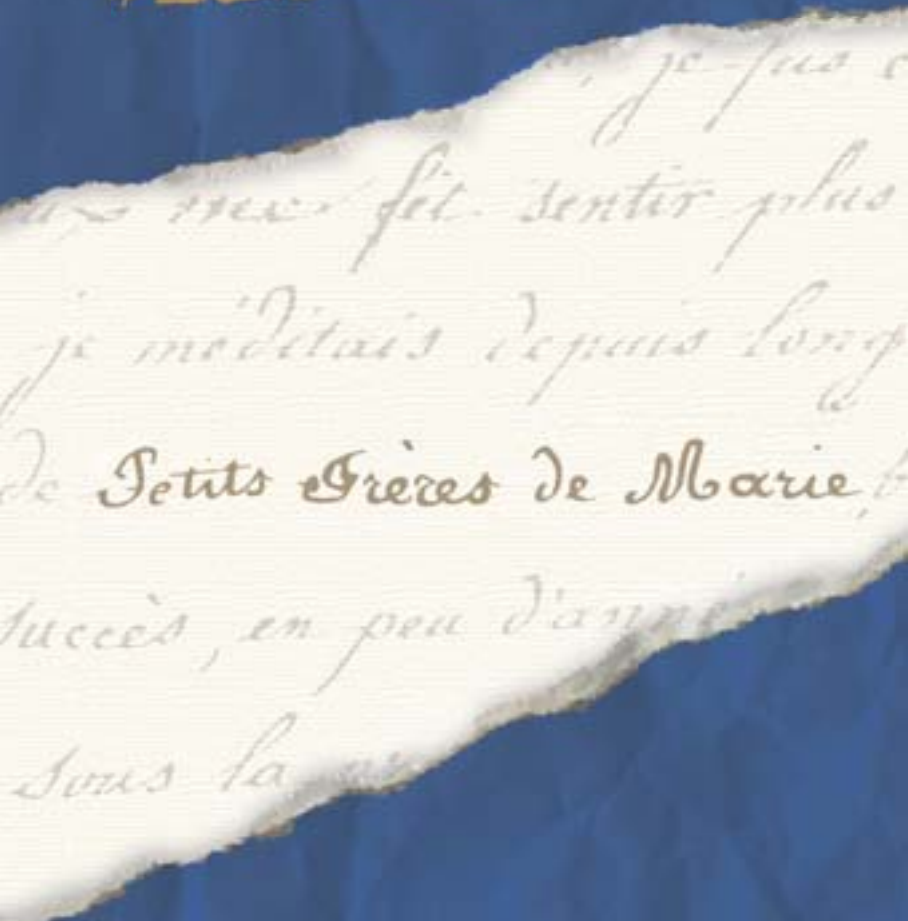 je fus
me fit sentir plus
je méditais depuis long
de Petits Frères de Marie
succès, en peu d'anné
sous la